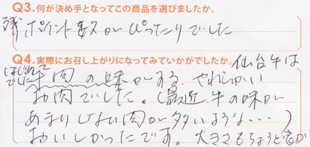 Q3.何が決め手となってこの商品を選びましたか。
残ポイント数がぴったりでした
Q4.実際にお召し上がりになってみていかがでしたか。仙台牛は
はじめて
でした 牛肉の味がする、やわらかい
お肉でした。(最近、牛の味が
あまりしない肉が多いような・・・)
おいしかったです。大きさもちょうど